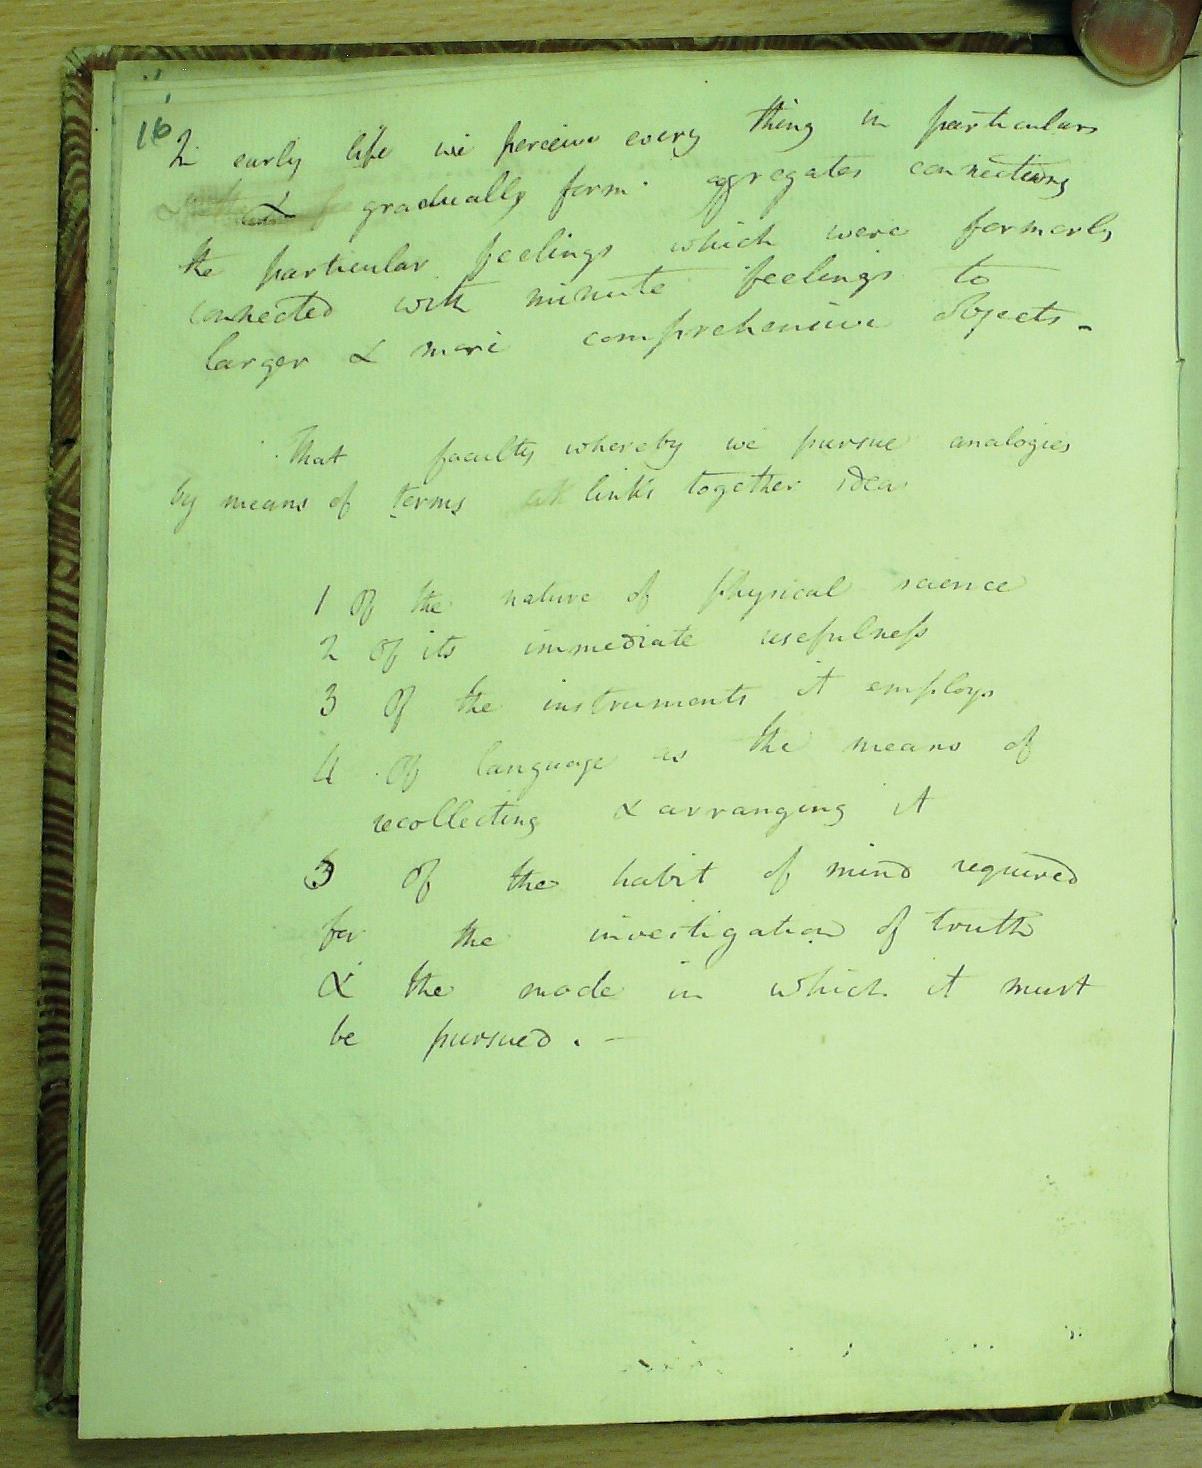 16
In early life we perceive every thing in particulars
& gradually form aggregates connecting
the particular feelings which were formerly
connected with minute feelings to
larger & more comprehensive objects. 
That faculty whereby we pursue analogies
by means of terms links together idea
1 Of the nature of physical science
2 Of its immediate usefulness
3 Of the instruments it employs
4 Of language as the means of
recollecting & arranging it
5 Of the habit of mind required
for the investigation of truth
& the mode in which it must
be pursued. –